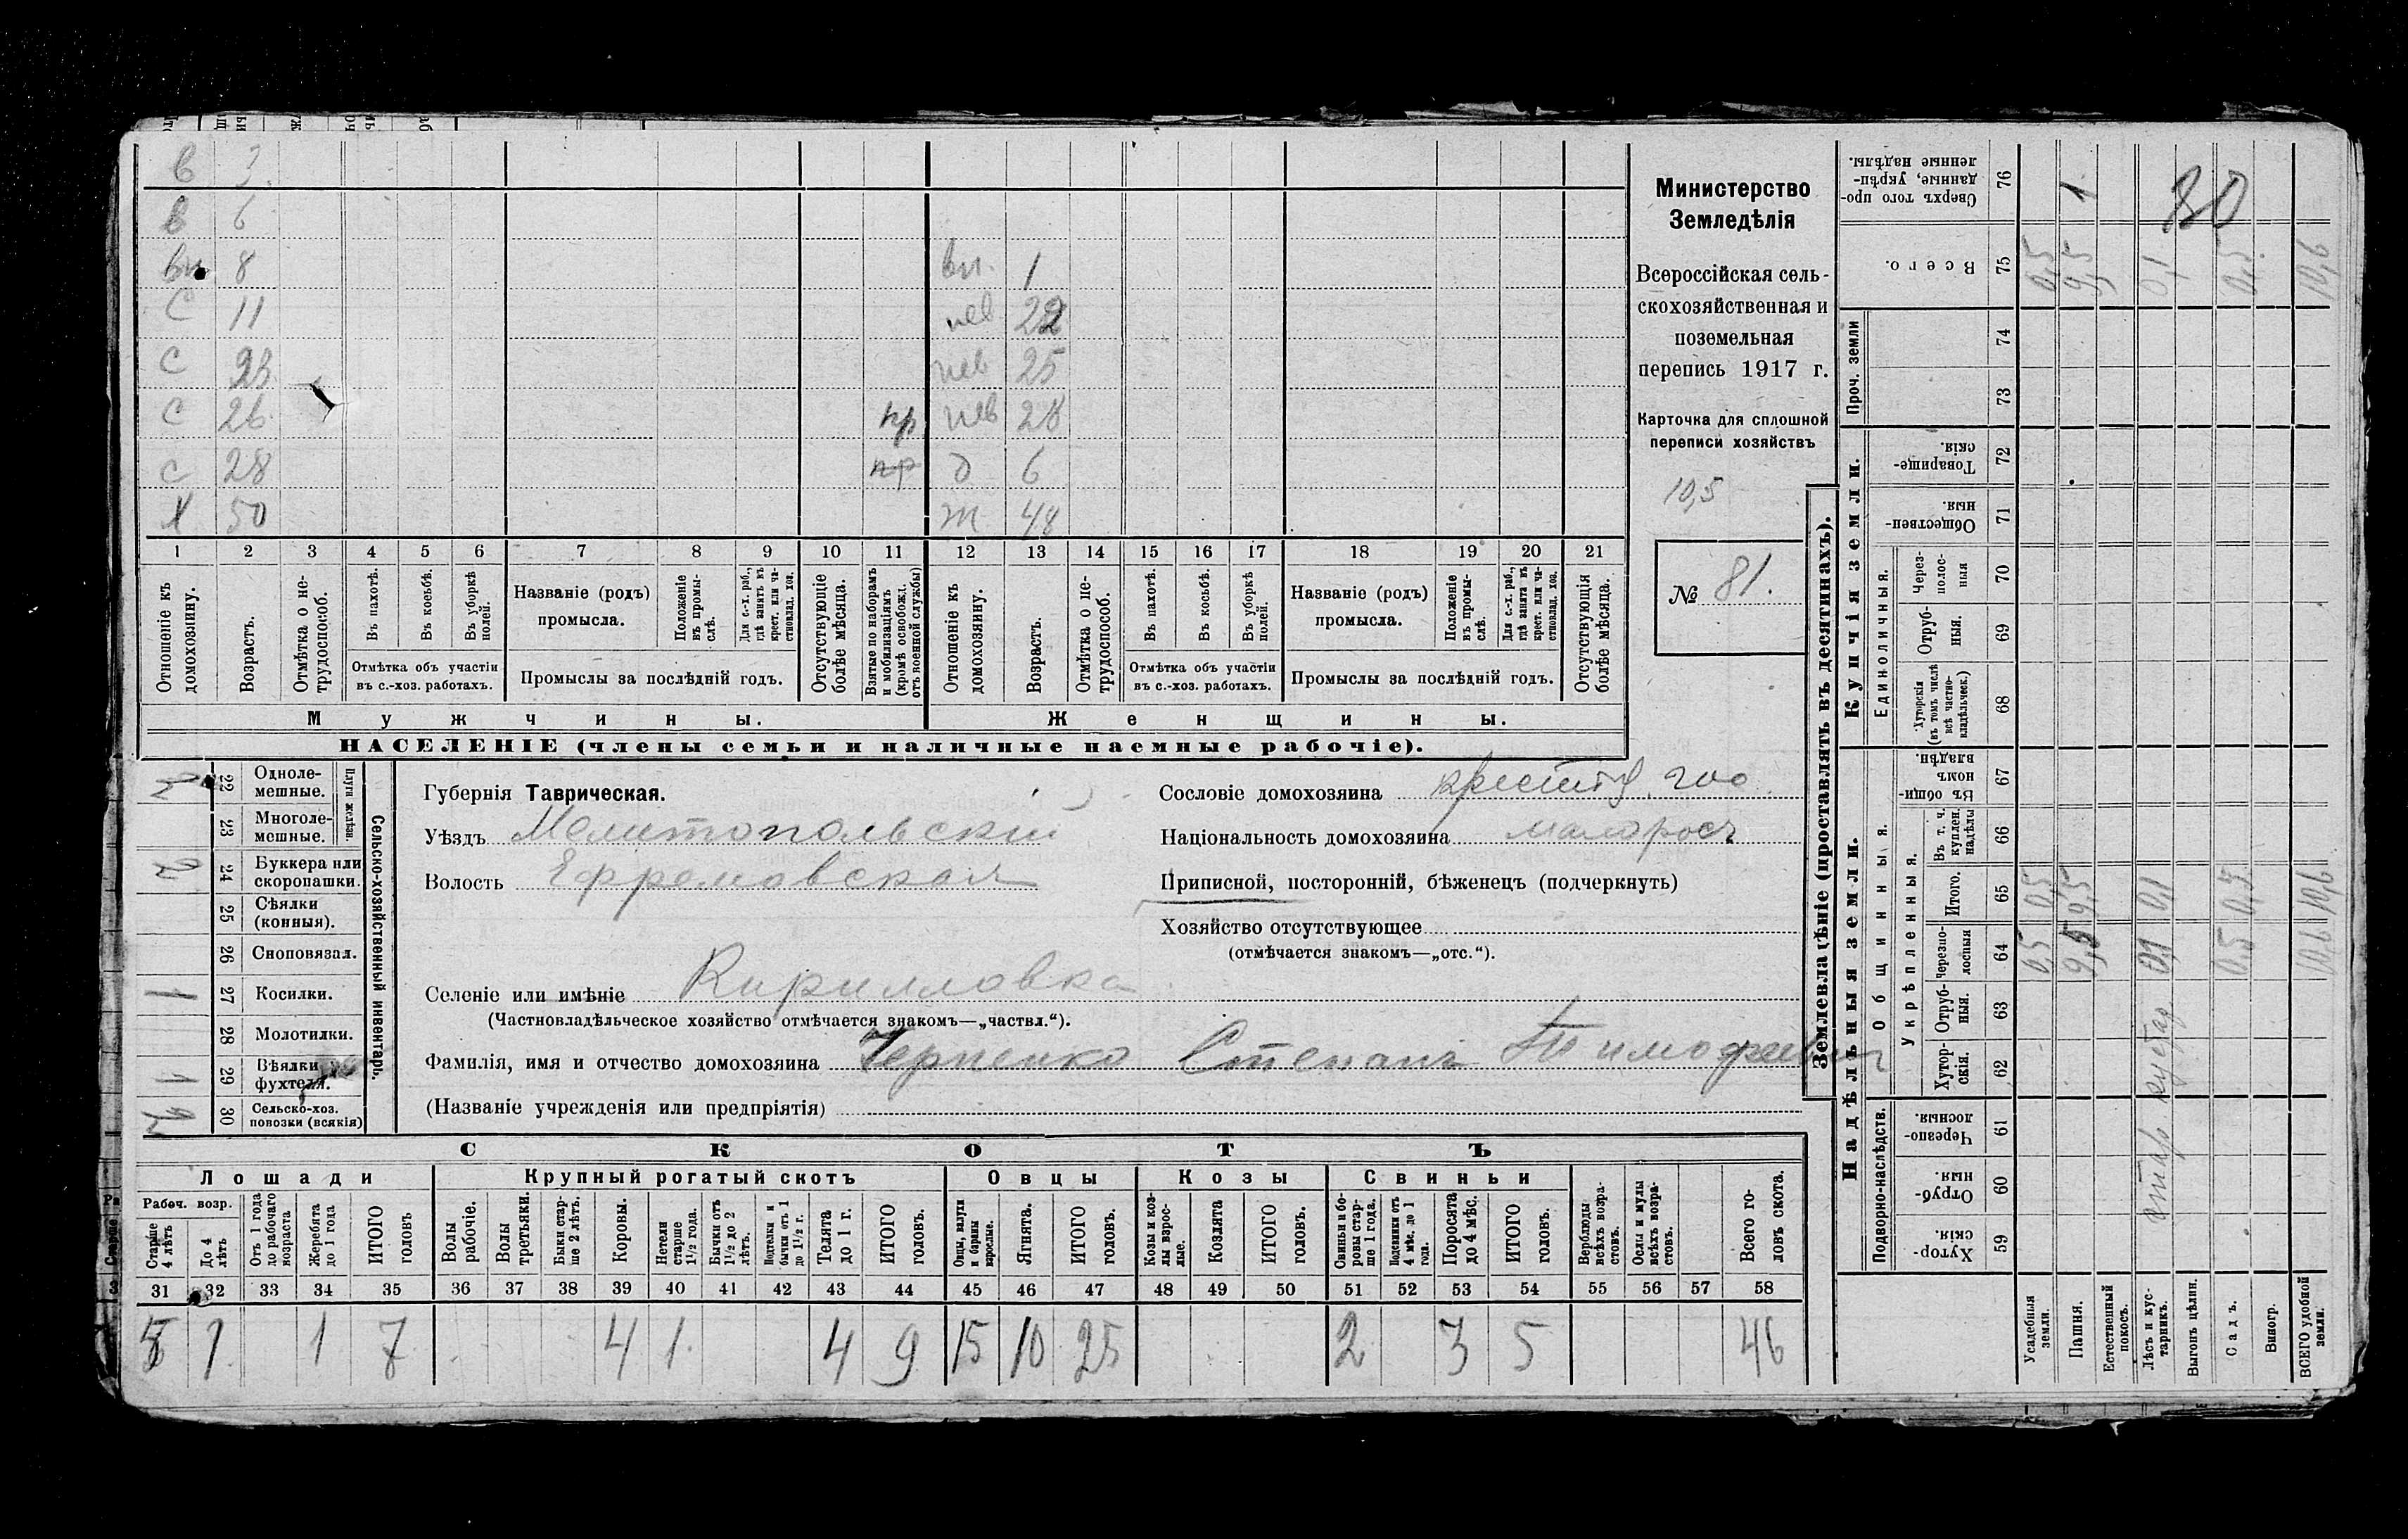 в 3
в 6
вн 8 вн. 1
с 11 нев 22
с 23 нев 25
с 26 пр нев 28
с 28 пр д 6
х 50 ж 48
1 2 3 4 5 6 7 8 9 10 11 12 13 14 15 16 17 18 19 20 21
Отношеніе къ домохозяину.
Возрастъ.
Отмѣтка о не-трудоспособ.
Въ пахотѣ.
Въ косьбѣ.
Въ уборкѣ полей.
Отмѣтка объ участіи
въ с.-хоз. работахъ.
Названіе (родъ)
промысла.
Положеніе въ промы-слѣ.
Для с.-х. раб., гдѣ занятъ въ крест. или ча-стновлад. хоз.
Промыслы за послѣдній годъ.
Отсутствующіе болѣе мѣсяца.
Взятые по наборамъ и мобилизаціямъ (кромѣ освобожд. отъ военной службы)
Отношеніе къ домохозяину.
Возрастъ.
Отмѣтка о не-трудоспособ.
Въ пахотѣ.
Въ косьбѣ.
Въ уборкѣ полей.
Отмѣтка объ участіи
въ с.-хоз. работахъ.
Названіе (родъ)
промысла.
Положеніе въ промы-слѣ.
Для с.-х. раб., гдѣ занята въ крест. или ча-стновлад. хоз.
Промыслы за послѣдній годъ.
Отсутствующія болѣе мѣсяца.
Мужчины. Женщины.
НАСЕЛЕНІЕ (члены семьи и наличные наемные рабочіе).
Министерство
Земледѣлія
Всероссійская сель-
скохозяйственная и
поземельная
перепись 1917 г.
Карточка для сплошной
переписи хозяйствъ
10,5
№ 81.
Сельско-хозяйственный инвентарь.
Плуги желѣзн.
22 Одноле-мешные.
23 Многоле-мешные.
2 24 Буккера или скоропашки.
25 Сѣялки (конныя).
26 Сноповязал.
1 27 Косилки.
28 Молотилки.
1 29 Вѣялки фухтеля.
30 Сельско-хоз. повозки (всякія)
Губернія Таврическая.
Уѣздъ Мелитопольскій
Волость Ефремовская
Сословіе домохозяина
Національность домохозяина малоросъ
Приписной, посторонній, бѣженецъ (подчеркнуть)
Хозяйство отсутствующее
(отмѣчается знакомъ—„отс.“).
Селеніе или имѣніе Кирилловка
(Частновладѣльческое хозяйство отмѣчается знакомъ—„частвл.“).
Фамилія, имя и отчество домохозяина Черненко Степанъ Тимофеев
(Названіе учрежденія или предпріятія)
СКОТЪ
Лошади Крупный рогатый скотъ Овцы Козы Свиньи
Рабоч. возр.
Старше 4 лѣтъ
До 4 лѣтъ
Отъ 1 года до рабочаго возраста
Жеребята до 1 года
ИТОГО головъ
Волы рабочіе.
Волы третьяки.
Быки стар-ше 2 лѣтъ.
Коровы.
Нетели старше 1½ года.
Бычки отъ 1½ до 2 лѣтъ.
Подтелки и бычки отъ 1 до 1½ г.
Телята до 1 г.
ИТОГО головъ.
Овцы, валухи и бараны взрослые.
Ягнята.
ИТОГО головъ.
Козы и коз-лы взрос-лые.
Козлята
ИТОГО головъ.
Свиньи и бо-ровы стар-ше 1 года.
Подсвинки отъ 4 мѣс. до 1 года.
Поросята до 4 мѣс.
ИТОГО головъ.
Верблюды всѣхъ возра-стовъ.
Ослы и мулы всѣхъ возра-стовъ.
Всего го-ловъ скота.
31 32 33 34 35 36 37 38 39 40 41 42 43 44 45 46 47 48 49 50 51 52 53 54 55 56 57 58
5 1 1 7 4 1 4 9 15 10 25 2 3 5 46
Землевладѣніе (проставлять въ десятинахъ).
Надѣльныя земли. Купчія земли.
Проч. земли
Подворно-наслѣдств.
Общинныя.
Укрѣпленныя.
Единоличныя.
59 Хутор-скія.
60 Отруб-ныя.
61 Черезпо-лосныя
62 Хутор-скія.
63 Отруб-ныя.
64 Черезпо-лосныя
65 Итого.
66 Въ т. ч. куплен. надѣлы
67 Въ общи-номъ владѣн.
68 Хуторскія (въ томъ числѣ всѣ частно-владѣльческ.)
69 Отруб-ныя.
70 Через-полос-ныя
71 Обществен-ныя
72 Товарище-скія.
73
74
75 Всего.
76 Сверхъ того про-данные, укрѣп-ленные надѣлы.
Усадебныя земли. 0,5 0,5 0,5
Пашня. 9,5 9,5 9,5 1
Естественный покосъ.
Лѣсъ и кус-тарникъ. 0,1 0,1 0,1
Выгонъ цѣлин.
Садъ. 0,5 0,5 0,5
Виногр.
ВСЕГО удобной земли. 10,6 10,6 10,6
80